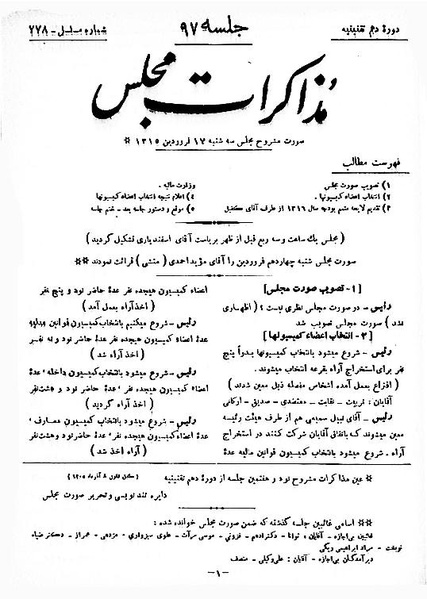 دورهٔ دهم تقنینیه
جلسه ۹۷
شماره مسلسل - ۷۷۸
مذاکرات مجلس
صورت مشروح مجلس سه شنبه ۱۷ فروردین ۱۳۱۵ ※
فهرست مطالب
۱) تصویب صورت مجلس
۲) انتخاب اعضاء کمیسیونها .
۳) تقدیم لایحه متمم بودجه سال ۱۳۱۶ از طرف آقای کفیل
وزارت مالیه .
۴) اعلام نتیجه انتخاب اعضاء کمیسیونها
۵) موقع و دستور جلسه بعد - ختم جلسه
( مجلس یك ساعت و سه ربع قبل از ظهر بریاست آقای اسفندیاری تشکیل گردید )
صورت مجلس شنبه چهاردهم فروردین را آقای مؤیداحمدی ( منشی ) قرائت نمودند ※※
[ ۱- تصویب صورت مجلس ]
رئیس - در صورت مجلس نظری نیست ؟ ( اظهاری
نشد ) صورت مجلس تصویب شد
[ ۲ - انتخاب اعضاء کمیسیونها ]
رئیس - شروع میشود بانتخاب کمیسیونها بدواً پنج
نفر برای استخراج آراء بقرعه انتخاب میشوند .
( اقتراع بعمل آمده اشخاص مفصله ذیل معین شدند )
آقایان : تربیت - نقابت - معتضدی - صدیق - اورکانی
رئیس - آقای نبیل سمیعی هم از طرف هیئت رئیسه
معین میشوند که باتفاق آقایان شرکت کنند در استخراج
آراء . شروع میشود بانتخاب کمیسیون قوانین مالیه عدهٔ
اعضاء کمیسیون هیجده نفر عدهٔ حاضر نود و پنج نفر
( اخذ آراء بعمل آمد )
رئیس - شروع میکنیم بانتخاب کمیسیون قوانین
عدهٔ اعضاء کمیسیون هیجده نفر عدهٔ حاضر نود و نه نفر
( اخذ آراء شد )
رئیس - شروع میشود بانتخاب کمیسیون داخله ، عدهٔ
اعضاء کمیسیون هیجده نفر ، عدهٔ حاضر نود و هشت نفر
( اخذ آراء گردید )
رئیس - شروع میشود بانتخاب کمیسیون معارف ،
عدهٔ اعضاء کمیسیون هیجده نفر عدهٔ حاضر نود و هشت نفر
( اخذ آراء شد )
※ عین مذاکرات مشروح نود و هفتمین جلسه از دورهٔ دهم تقنینیه
دایره تند نویسی و تحریر صورت مجلس
※※ اسامی غائبین جلسه گذشته که ضمن صورت مجلس خوانده شده :
غائبین بی اجازه - آقایان : توانا - دکتر ادهم - قزونی - موسی مرآت - علوی سبزواری - - دکتر ضیاء
- مراد اریه
دیرآمدگان بی اجازه - آقایان : علی وکیلی - منصف
-۱-